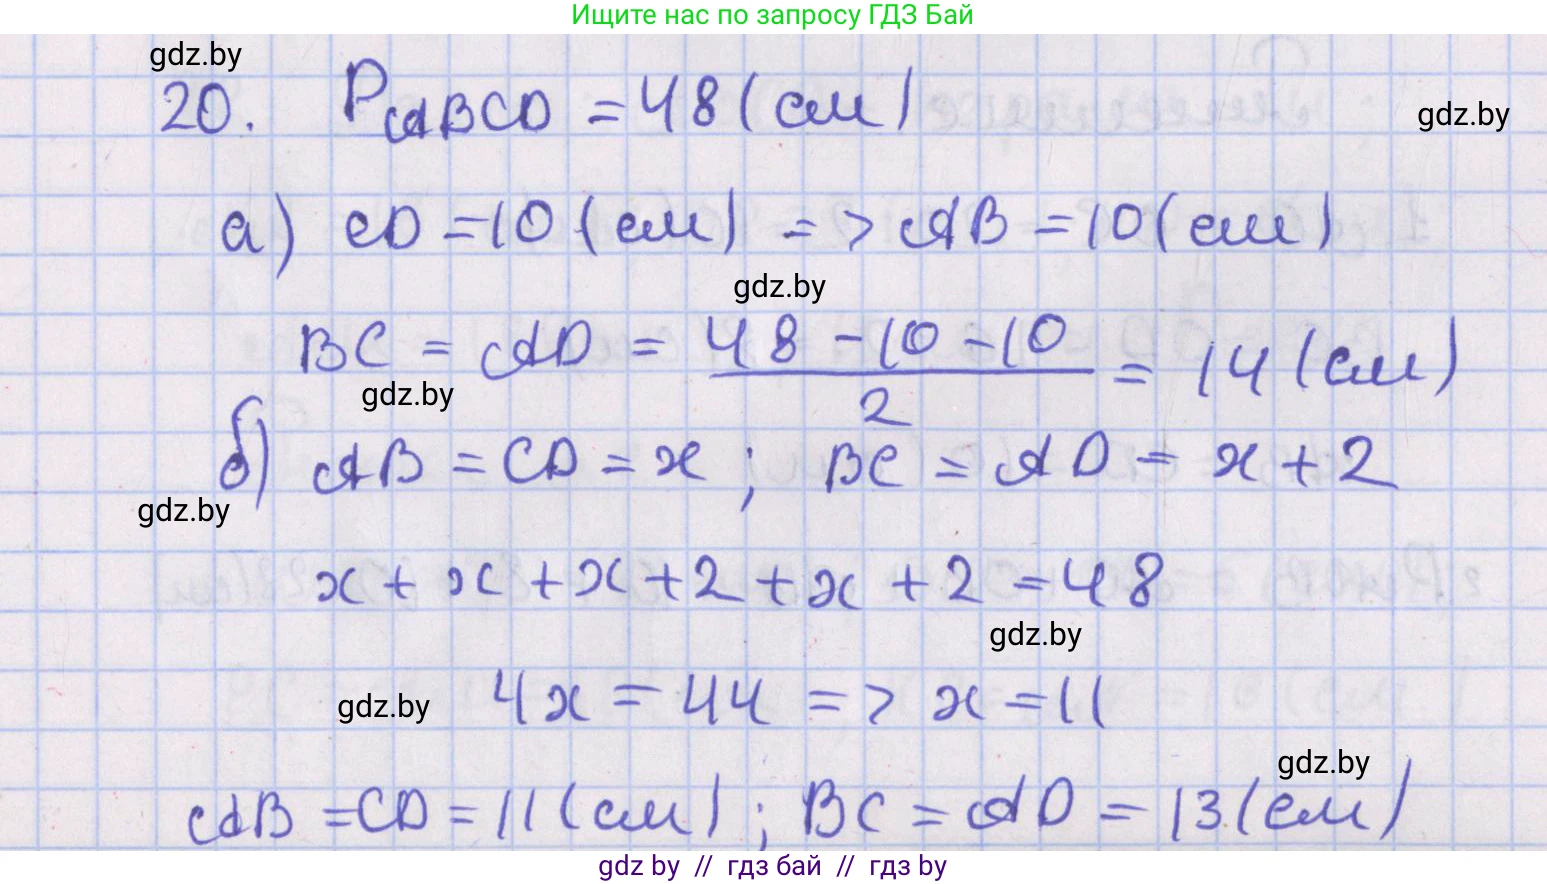 Ищите нас по запросу ГДЗ Бай
gdz.by
20. P_ABCD = 48 (см)
gdz.by
а) CD = 10 (см) => AB = 10 (см)
gdz.by
BC = AD = (48 - 10 - 10)/2 = 14 (см)
gdz.by
б) AB = CD = x ; BC = AD = x + 2
gdz.by
x + x + x + 2 + x + 2 = 48
gdz.by
4x = 44 => x = 11
gdz.by
gdz.by
AB = CD = 11 (см) ; BC = AD = 13 (см)
gdz by // гдз бай // гдз by